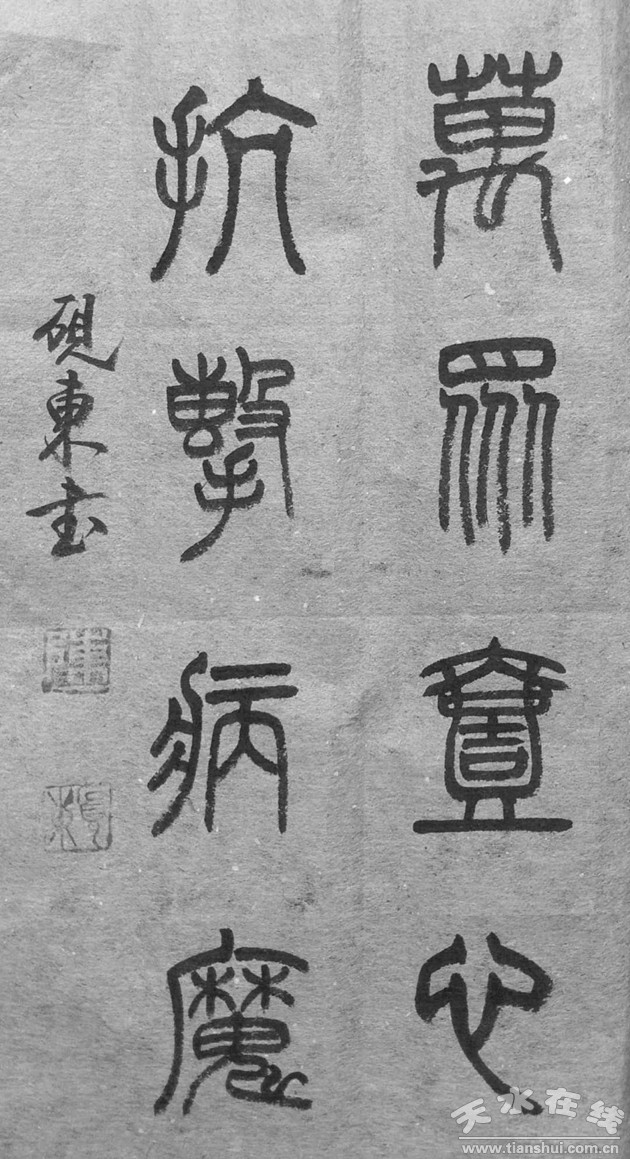 萬眾壹心
抗擊病魔
硯東书
天水在线
www.tianshui.com.cn